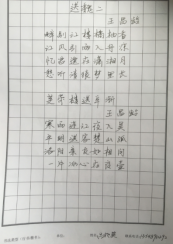 送魏二
王昌龄
醉别江楼橘柚香
江风引雨入舟凉
忆君遥在潇湘月
愁听清猿梦里长
芙蓉楼送辛渐
王昌龄
寒雨连江夜入吴
平明送客楚山孤
洛阳亲友如相问
一片冰心在玉壶